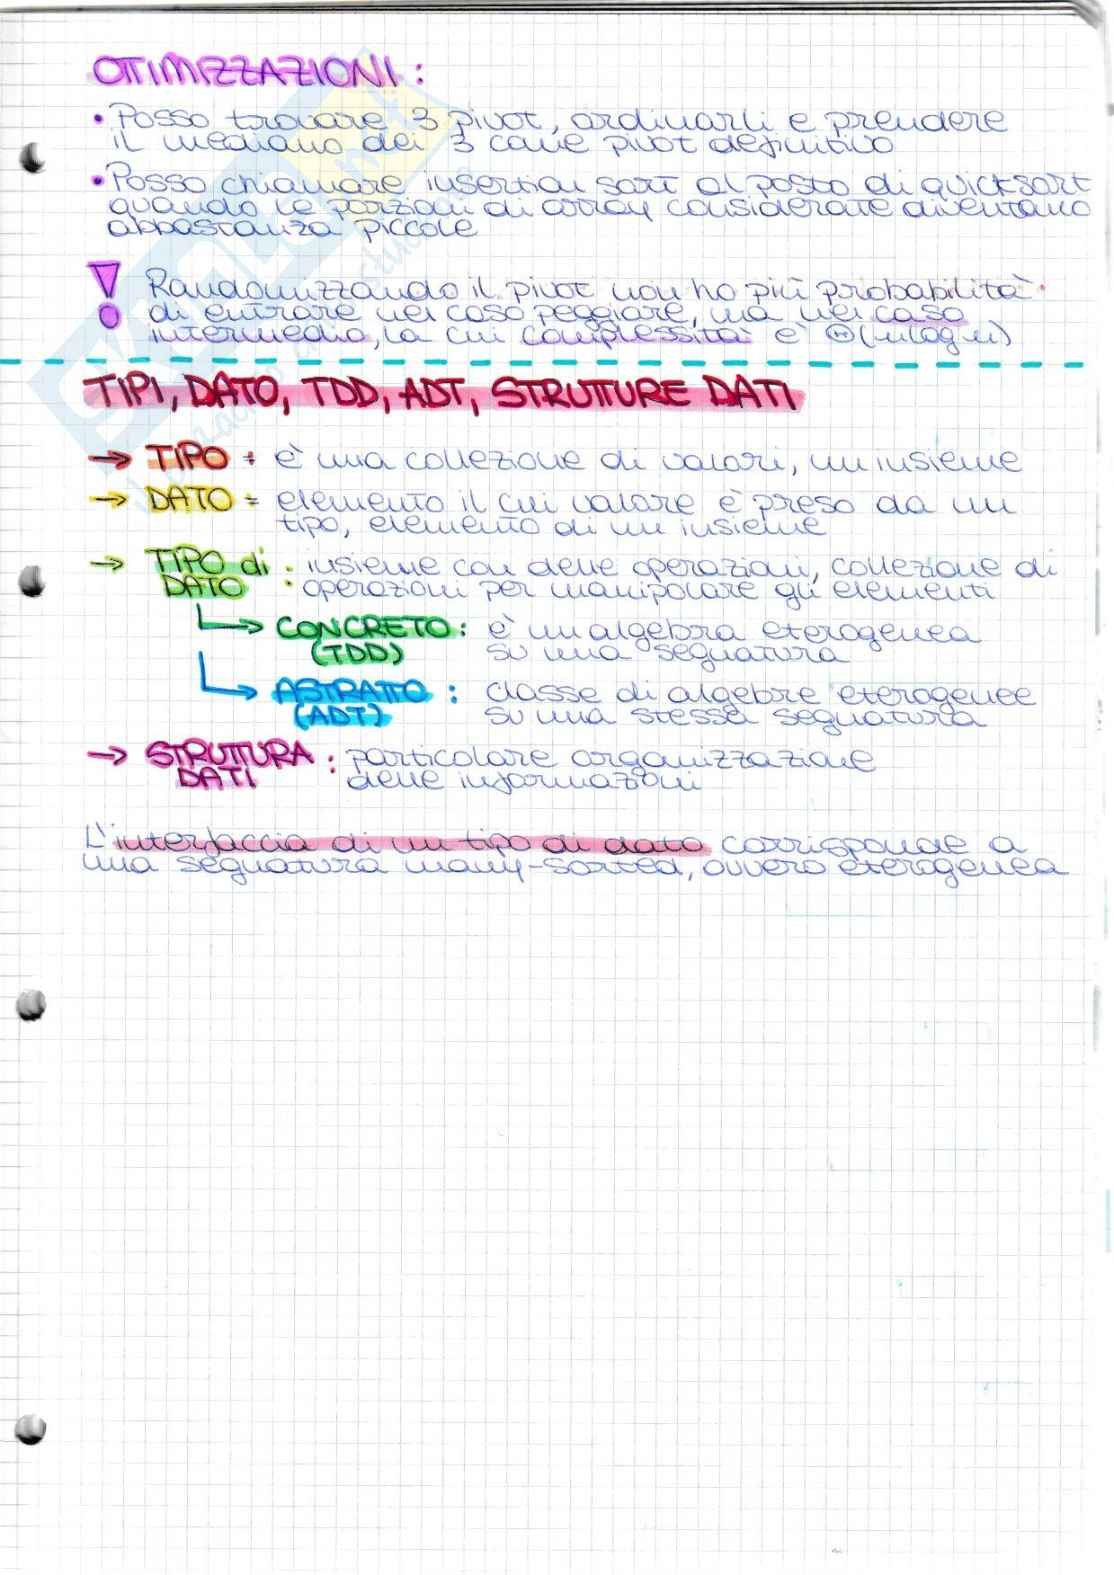 OTTIMIZZAZIONI:
• Posso trovare 3 pivot, ordinarli e prendere
il mediano dei 3 come pivot definitivo
• Posso chiamare insertion sort al posto di quicksort
quando le porzioni di array considerate diventano
abbastanza piccole
! Randomizzando il pivot non ho più probabilità
di entrare nel caso peggiore, ma nel caso
intermedio, la cui complessità è Θ(nlogn)
TIPI, DATO, TDD, ADT, STRUTTURE DATI
→ TIPO: è una collezione di valori, un insieme
→ DATO: elemento il cui valore è preso da un
tipo, elemento di un insieme
→ TIPO di DATO: insieme con delle operazioni, collezione di
operazioni per manipolare gli elementi
↳ CONCRETO (TDD): è un algebra eterogenea
su una segnatura
↳ ASTRATTO (ADT): classe di algebre eterogenee
su una stessa segnatura
→ STRUTTURA DATI: particolare organizzazione
delle informazioni
L'interfaccia di un tipo di dato corrisponde a
una segnatura many-sorted, ovvero eterogenea